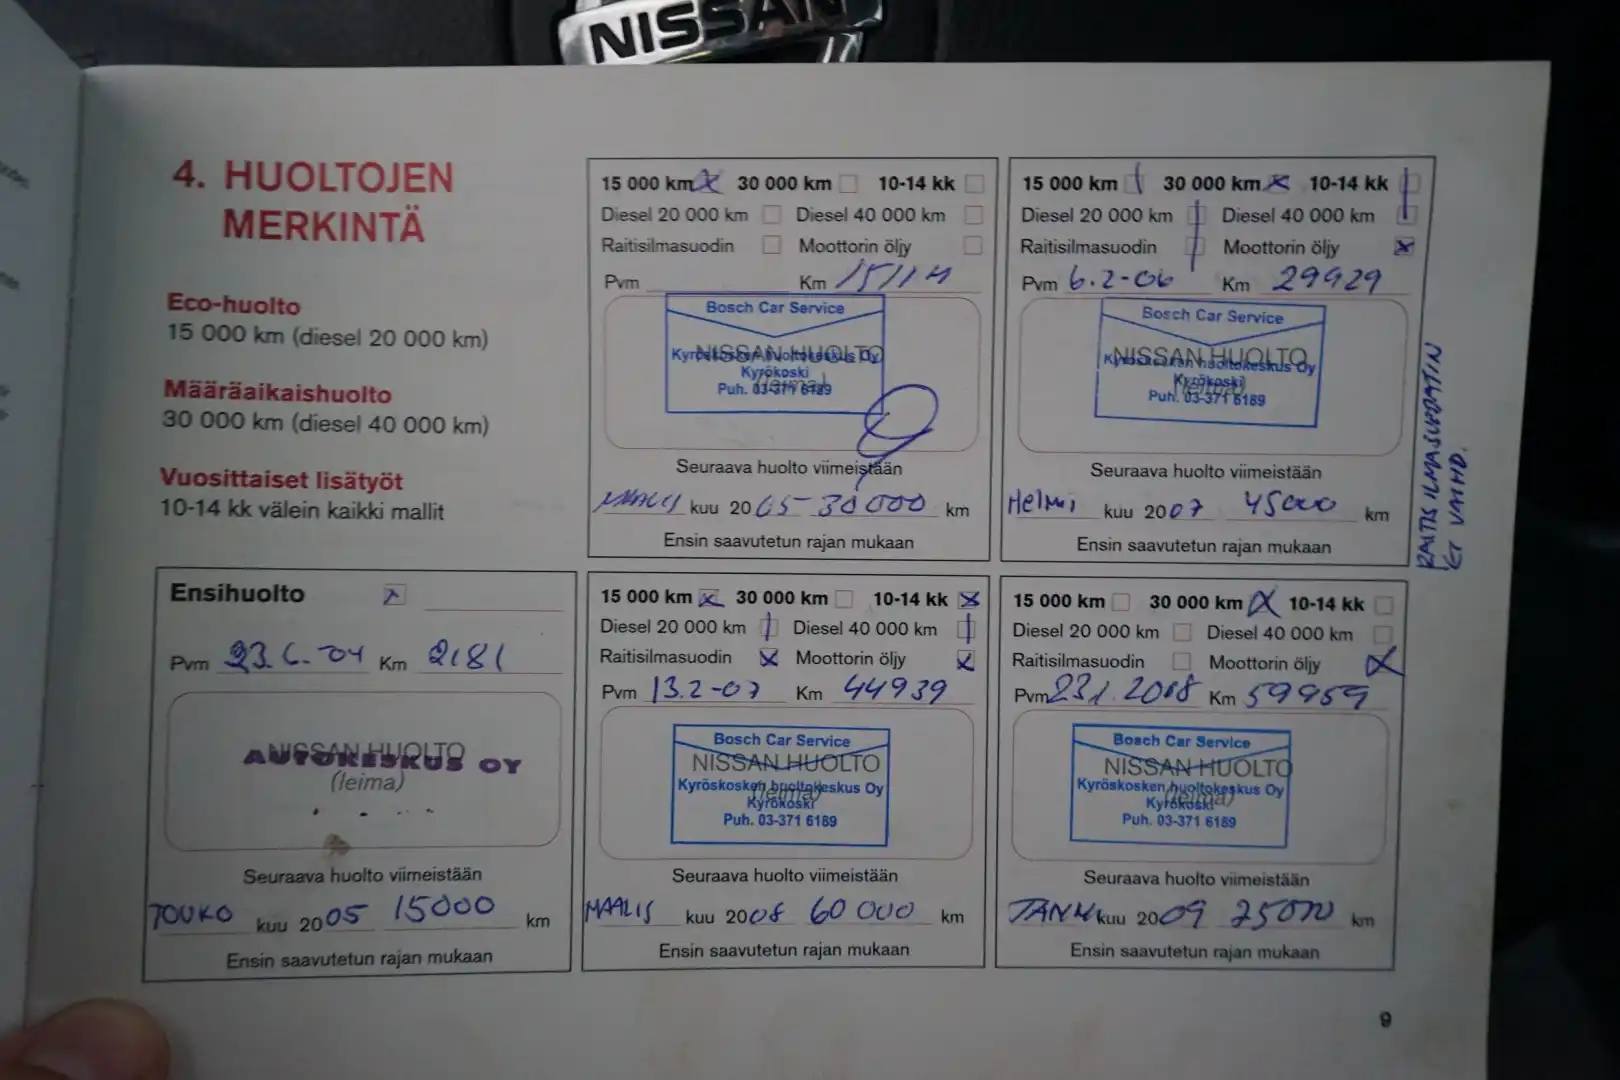 NISSAN
4. HUOLTOJEN
MERKINTÄ
Eco-huolto
15 000 km (diesel 20 000 km)
Määräaikaishuolto
30 000 km (diesel 40 000 km)
Vuosittaiset lisätyöt
10-14 kk välein kaikki mallit
15 000 km 30 000 km 10-14 kk
Diesel 20 000 km Diesel 40 000 km
Raitisilmasuodin Moottorin öljy
Pvm Km
Bosch Car Service
NISSAN HUOLTO
Kyröskosken huoltokeskus Oy
(leima)
Kyröskoski
Puh. 03-371 6189
Seuraava huolto viimeistään
MAALIS kuu 2005 - 30 000 km
Ensin saavutetun rajan mukaan
15 000 km 30 000 km 10-14 kk
Diesel 20 000 km Diesel 40 000 km
Raitisilmasuodin Moottorin öljy
Pvm 6.2-06 Km 29929
Bosch Car Service
NISSAN HUOLTO
Kyröskosken huoltokeskus Oy
Kyröskoski
(leima)
Puh. 03-371 6189
Seuraava huolto viimeistään
HELMI kuu 2007 45000 km
Ensin saavutetun rajan mukaan
RAITIS ILMASUODATIN
EI VAIHD.
Ensihuolto
Pvm 23.6.-04 Km 2181
NISSAN HUOLTO
AUTOKESKUS OY
(leima)
Seuraava huolto viimeistään
TOUKO kuu 2005 15000 km
Ensin saavutetun rajan mukaan
15 000 km 30 000 km 10-14 kk
Diesel 20 000 km Diesel 40 000 km
Raitisilmasuodin Moottorin öljy
Pvm 13.2-07 Km 44939
Bosch Car Service
NISSAN HUOLTO
Kyröskosken huoltokeskus Oy
(leima)
Kyröskoski
Puh. 03-371 6189
Seuraava huolto viimeistään
MAALIS kuu 2008 60 000 km
Ensin saavutetun rajan mukaan
15 000 km 30 000 km 10-14 kk
Diesel 20 000 km Diesel 40 000 km
Raitisilmasuodin Moottorin öljy
Pvm 23.1.2008 Km 59959
Bosch Car Service
NISSAN HUOLTO
Kyröskosken huoltokeskus Oy
(leima)
Kyröskoski
Puh. 03-371 6189
Seuraava huolto viimeistään
TAMMI kuu 2009 75000 km
Ensin saavutetun rajan mukaan
9